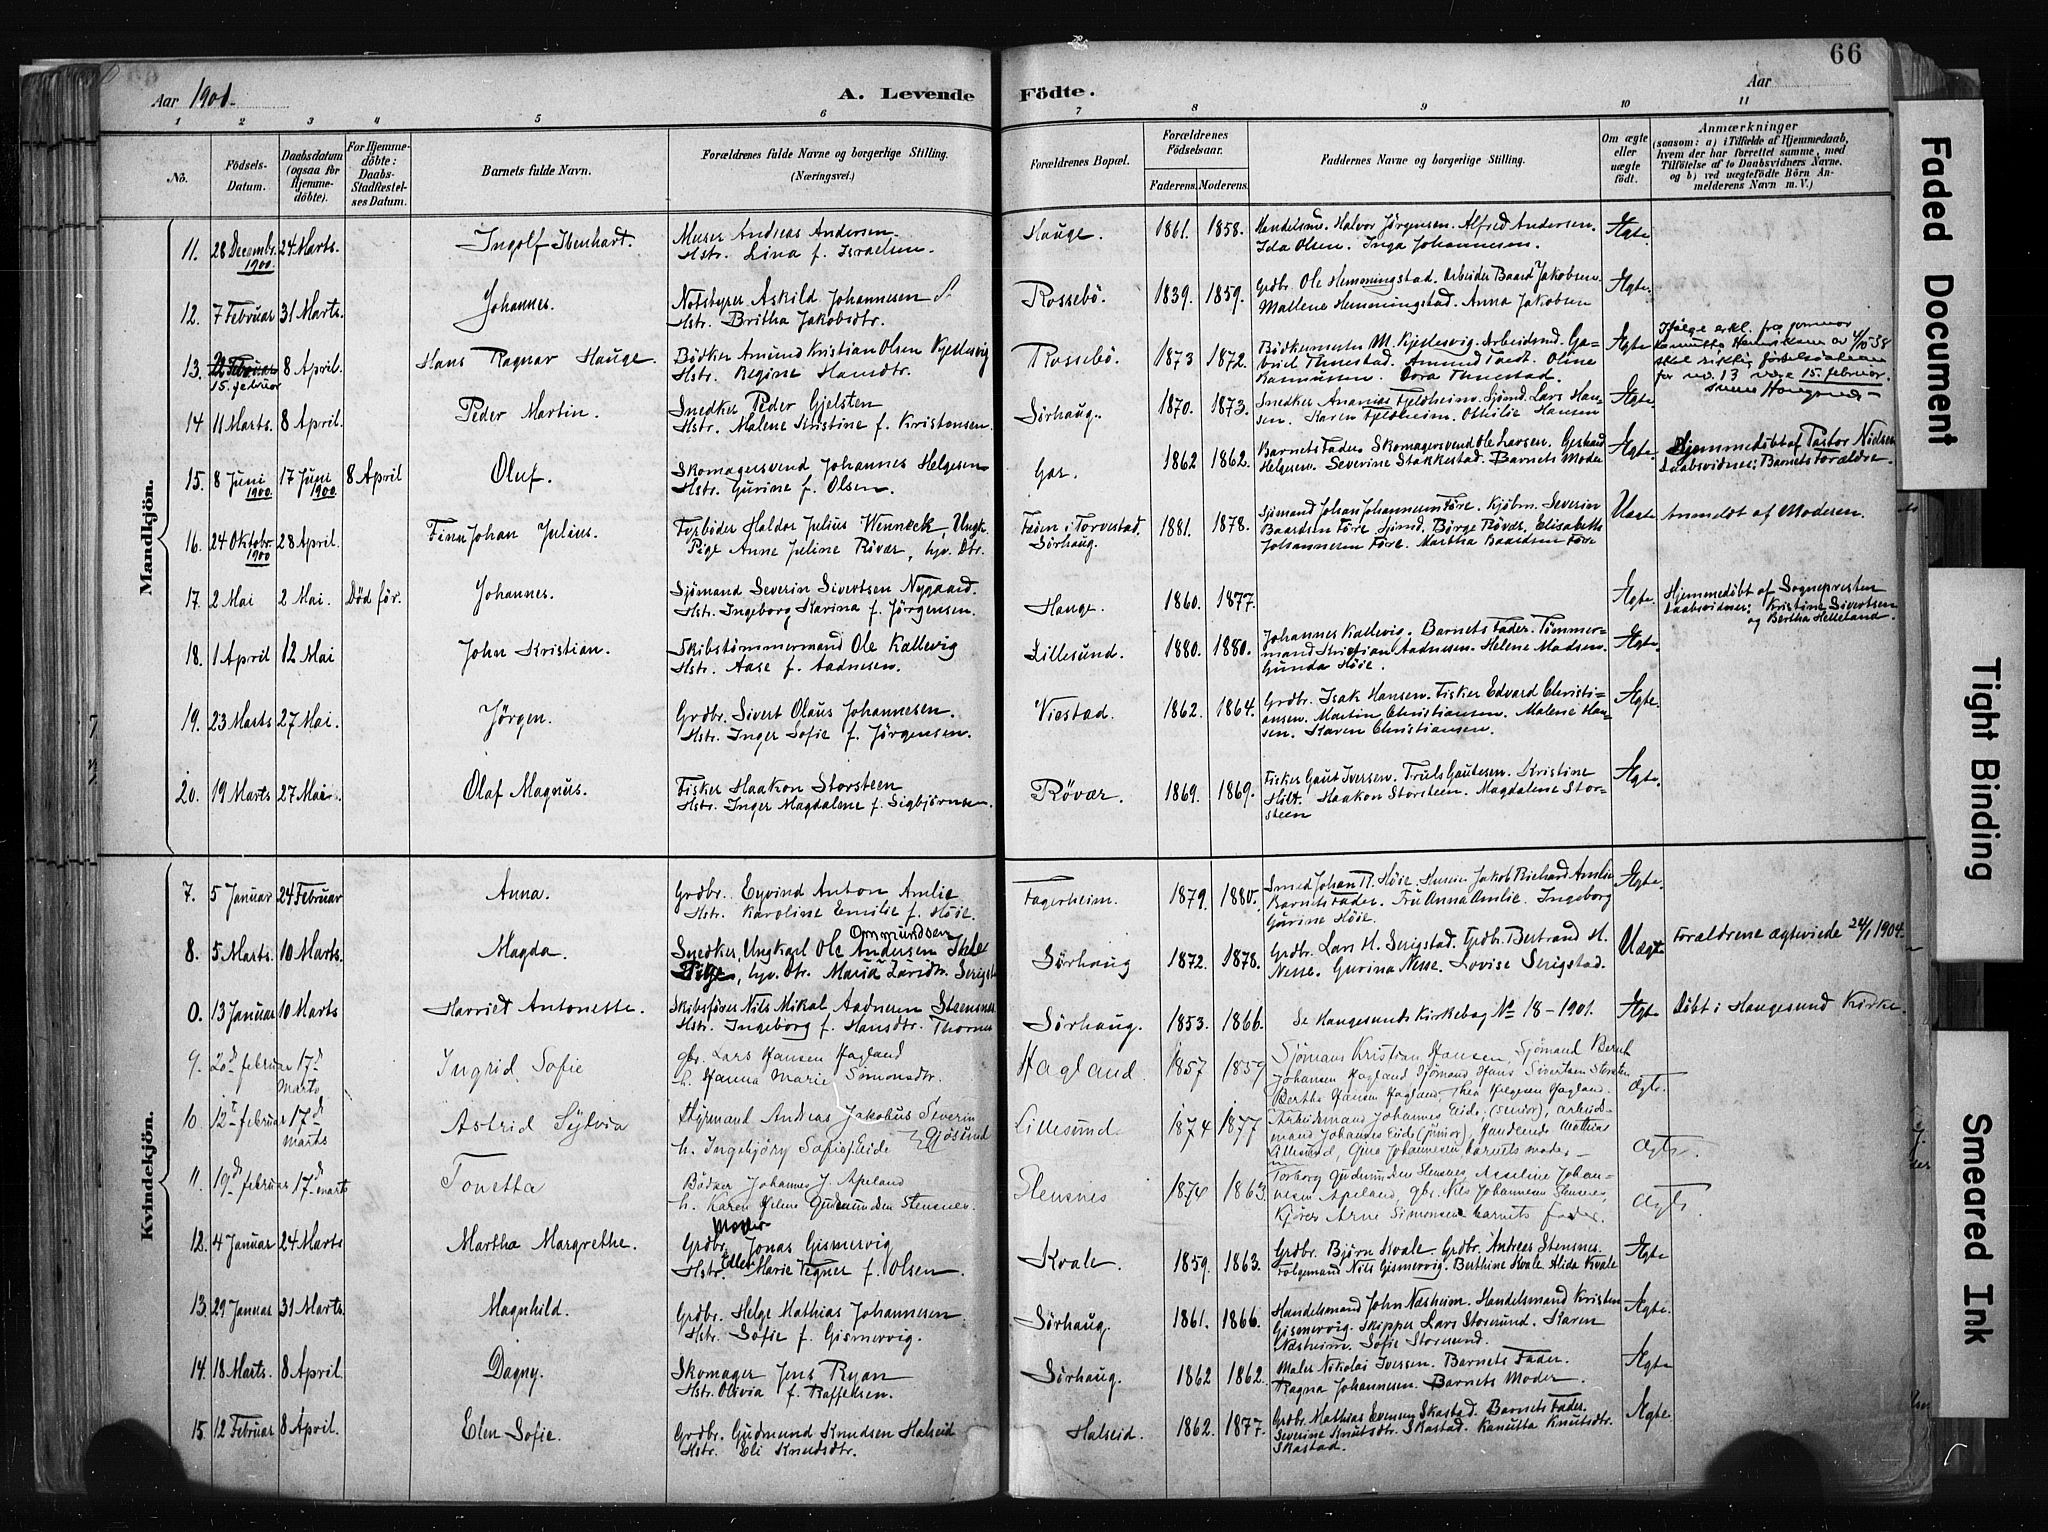 66
Aar 1901.
A. Levende Födte.
Aar
1 2 3 4 5 6 7 8 9 10 11
No.
Födsels-Datum.
Daabsdatum (ogsaa for Hjemmedöbte).
For Hjemmedöbte: Daabs-Stadfæstelses Datum.
Barnets fulde Navn.
Forældrenes fulde Navne og borgerlige Stilling. (Næringsvei.)
Forældrenes Bopæl.
Forældrenes Födselsaar.
Faderens. Moderens.
Faddernes Navne og borgerlige Stilling.
Om ægte eller uægte födt.
Anmærkninger
(saasom: a) i Tilfælde af Hjemmedaab, hvem der har forrettet samme, med Tilföielse af to Daabsvidners Navne, og b) ved uægtefödte Börn Anmelderens Navn m. V.)
Mandkjön.
11. 28 Decembr. 1900 24 Marts. Ingolf Ibenhart. Murer Andreas Andersen. Hauge. 1861. 1858. Handelsm. Halvor Jørgensen. Alfred Andersen. Ægte.
Hstr. Lina f. Israelsen. Ida Olsen. Inga Johannesen.
12. 7 Februar 31 Marts. Johannes. Notsbyrer Askild Johannesen Rossebö. 1839. 1859. Grdbr. Ole Hemmingstad. Arbeider Baard Jakobsen. Ægte.
Hstr. Britha Jakobsdtr. Mallene Hemmingstad. Anna Jakobsen
13. 15. februar 8 April. Hans Ragnar Hauge. Bödker Amund Kristian Olsen Kjellesvig Rossebö. 1873 1872. Bödkermester M. Kjellesvig. Arbeidsmd. Ga- Ægte
Hstr. Regine Hansdtr. briel Thuestad. Amund Tordt. Oline
Rasmussen. Dora Thuestad.
Ifølge erkl. fra jormor
av 4/10-38
skal riktig fødselsdatum
for no. 13 være 15. februar.
14. 11 Marts. 8 April. Peder Martin. Snedker Peder Gjelsten Sörhaug. 1870. 1873. Snedker Ananias Fjeldheim. Sjömd. Lars Han- Ægte.
Hstr. Malene Kristine f. Kristensen. sen. Karen Fjeldheim. Othilie Hansen
15. 8 Juni 1900. 17 Juni 1900. 8 April Oluf. Skomagersvend Johannes Helgesen Gar. 1862 1862. Barnets Fader. Skomagersvend Ole Larsen. Gerhard Ægte. Hjemmedøbt af Pastor Nielsen
Hstr. Gurine f. Olsen. Helgesen. Severine Stakkestad. Barnets Moder Daabsvidner; Barnets Forældre.
16. 24 Oktobr. 1900 28 April. Finn Johan Julius. Fyrböder Haldor Julius Wenneck, Ungk. Føien i Torvestad. 1881. 1878. Sjømand Johan Johannesen Före. Kjöbm. Severin Uægte Anmeldt af Moderen.
Pige Anne Juline Røvær, hjv. Dtr. Sörhaug. Baardsen Före. Sjömd. Börge Røvær. Elisabeth
Johannesen Före. Martha Baardsen Före
17. 2 Mai 2 Mai. Död för. Johannes. Sjömand Severin Sivertsen Nygaard. Hauge. 1860. 1877. Ægte. Hjemmedøbt af Sognepresten
Hstr. Ingeborg Karina f. Jörgensen. Daabsvidner; Kristine Sivertsen
og Bertha Helleland.
18. 1 April 12 Mai John Kristian. Skibstömmermand Ole Kallevig Lillesund. 1880. 1880. Johannes Kallevig. Barnets Fader. Tömmer- Ægte.
Hstr. Aase f. Aadnesen. mand Kristian Aadnesen. Helene Madsen.
Gunda Höie.
19. 23 Marts 27 Mai. Jörgen. Grdbr. Sivert Olaus Johannesen. Viestad. 1862. 1864. Grdbr. Isak Hansen. Fisker Edvard Christi- Ægte.
Hstr. Inger Sofie f. Jörgensen. ansen. Martin Christiansen. Malene Han-
sen. Karen Christiansen.
20. 19 Marts 27 Mai. Olaf Magnus. Fisker Haakon Storsteen Rövær. 1869. 1869. Fisker Gaut Iversen. Truls Gautesen. Kristine Ægte.
Hstr. Inger Magdalene f. Sigbjörnsen. Hilt. Haakon Storsteen. Magdalene Stor-
steen
Kvindekjön.
7. 5 Januar 24 Februar Anna. Grdbr. Eyvind Anton Amlie Fagerheim. 1879. 1880. Smed Johan R. Höie. Jakob Richard Amlie Ægte.
Hstr. Karoline Emilie f. Höie. Barnets Fader. Fru Anna Amlie. Ingeborg
Gurine Höie.
8. 5 Marts. 10 Marts. Magda. Snedker, Ungkarl Ole Ommundsen Andersen Sörhaug 1872. 1878. Grdbr. Lars H. Serigstad. Grdbr. Bertrand H. Uægte Forældrene ægteviede 24/1 1904.
Pige, hjv. Dtr. Maria Larsdtr. Serigstad Nesse. Gurina Nesse. Lovise Serigstad.
0. 13 Januar 10 Marts Harriet Antonette. Skibsfører Nils Mikal Aadnesen Steensnes Sörhaug. 1853. 1866. Se Haugesunds Kirkebog No 18-1901. Ægte Döbt i Haugesund Kirke.
Hstr. Ingeborg f. Hansdtr. Thornes
9. 20de februar 17de Marts Ingrid Sofie gbr. Lars Hansen Hagland Hagland 1857 1859 Sjömans Kristian Hansen, Sjömand Bernt ægte.
h. Hanna Marie Simonsdtr. Johansen Hagland Sjömand Hans Sivertsen Storsten
Bertha Hansen Hagland, Thea Helgesen Hagland.
10. 12te februar 17de marts Astrid Sylvia Styrmand Andreas Jakobus Severin Lillesund 1874 1877 Arbeidsmand Johannes Eide, (senior), arbeids- ægte.
h. Ingebjörg Sofie f. Eide Gjösund mand Johannes Eide (junior), Handlende Mathias
Lillesund, Gina Johannesen barnets moder —
11. 19de februar 17de marts Tonetta Bödker Johannes J. Apeland Stensnes 1874 1863. Torborg Gudmundsen Stensnes, Asseline Johan- ægte.
h. Karen Helene Gudmundsen Stensnes. nesen Apeland, gbr. Nils Johannesen Stensnes,
Kjörer Arne Simonsen barnets fader.
12. 4 Januar 24 Marts Martha Margrethe. Grdbr. Jonas Gismervig Kvale. 1859. 1863. Grdbr. Björn Kvale. Grdbr. Andreas Stensnes. Ægte
Moder
Hstr. Ellen Marie Tegner f. Olsen. Folgemand Nils Gismervig. Berthine Kvale Alida Kvale
13. 29 Januar 31 Marts. Magnhild. Grdbr. Helge Mathias Johannesen Sörhaug. 1861. 1866. Handelsmand John Næsheim. Handelsmand Kristen Ægte.
Hstr. Sofie f. Gismervig. Gismervig. Skipper Lars Storesund. Karen
Næsheim. Sofie Storesund.
14. 18 Marts. 8 April. Dagny. Skomager Jens Ryan Sörhaug. 1862 1862. Maler Nikolai Iversen. Barnets Fader. Ægte
Hstr. Olivia f. Raffelsen. Ragna Johannesen. Barnets Moder.
15. 12 Februar 8 April. Elen Sofie. Grdbr. Gudmund Knudsen Halseid Halseid. 1862. 1877. Grdbr. Mathias Evensen Skastad. Barnets Fader. Ægte
Hstr. Eli Knudsdtr. Severine Knutsdtr. Skastad. Kanutta Knutsdtr.
Skastad.
Faded Document
Tight Binding
Smeared Ink